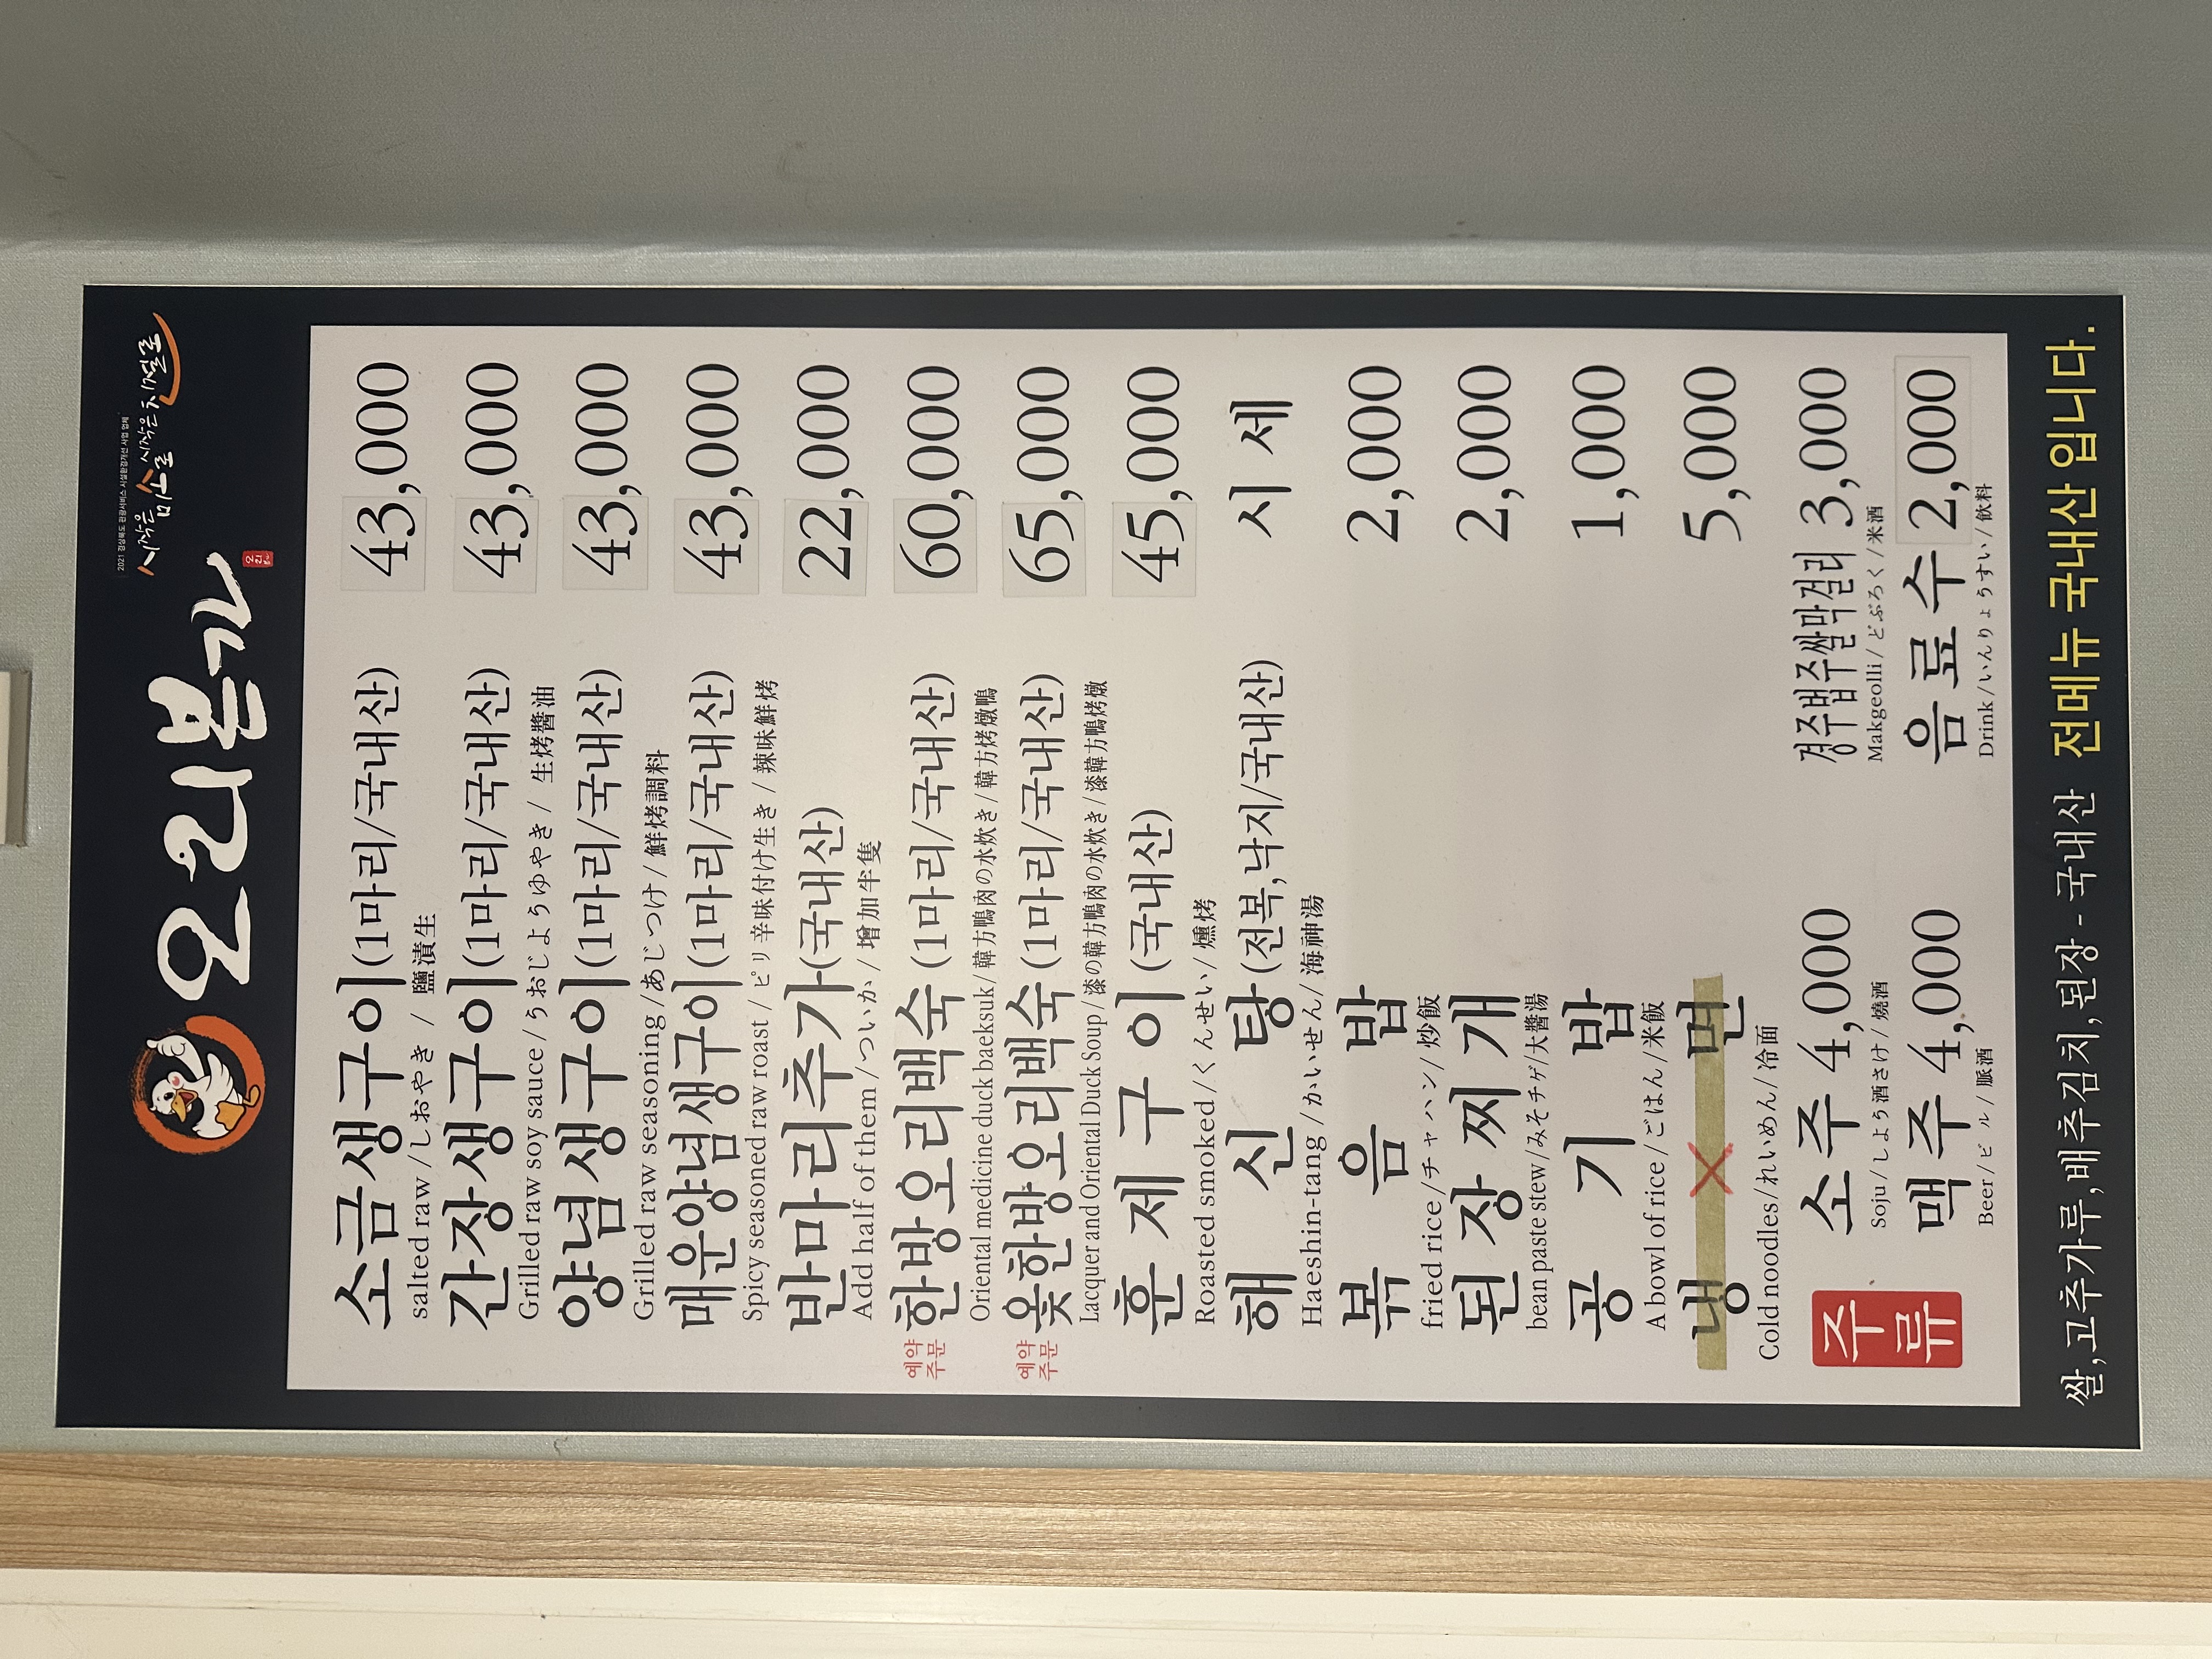 2021 경상북도 관광서비스 시설환경개선 사업 업체
시작은 미소로 시작은 친절로
오리본가
소금생구이(1마리/국내산) 43,000
salted raw /しおやき / 鹽漬生
간장생구이(1마리/국내산) 43,000
Grilled raw soy sauce/うおじょうゆやき / 生烤醬油
양념생구이(1마리/국내산) 43,000
Grilled raw seasoning /あじつけ / 鮮烤調料
매운양념생구이(1마리/국내산) 43,000
Spicy seasoned raw roast / ピリ辛味付け生き / 辣味鮮烤
반마리추가(국내산) 22,000
Add half of them /ついか/ 增加半隻
예약주문 한방오리백숙 (1마리/국내산) 60,000
Oriental medicine duck baeksuk/ 韓方鴨肉の水炊き/ 韓方烤燉鴨
예약주문 옻한방오리백숙 (1마리/국내산) 65,000
Lacquer and Oriental Duck Soup / 漆の韓方鴨肉の水炊き / 漆韓方鴨烤燉
훈제구이 (국내산) 45,000
Roasted smoked /くんせい/ 燻烤
해신탕 (전복,낙지/국내산) 시세
Haeshin-tang /かいいせん/ 海神湯
볶음밥 2,000
fried rice /チャハン/ 炒飯
된장찌개 2,000
bean paste stew/みそチゲ/大醬湯
공기밥 1,000
A bowl of rice/ごはん/米飯
냉면 5,000
Cold noodles/れいめん/ 冷面
주류
소주 4,000 경주법주쌀막걸리 3,000
Soju /しょう酒さけ/ 燒酒 Makgeolli/ どぶろく /米酒
맥주 4,000 음료수 2,000
Beer/ビ ル/ 脈酒 Drink/いんりょうすい/ 飲料
쌀,고추가루,배추김치,된장 - 국내산 전메뉴 국내산 입니다.